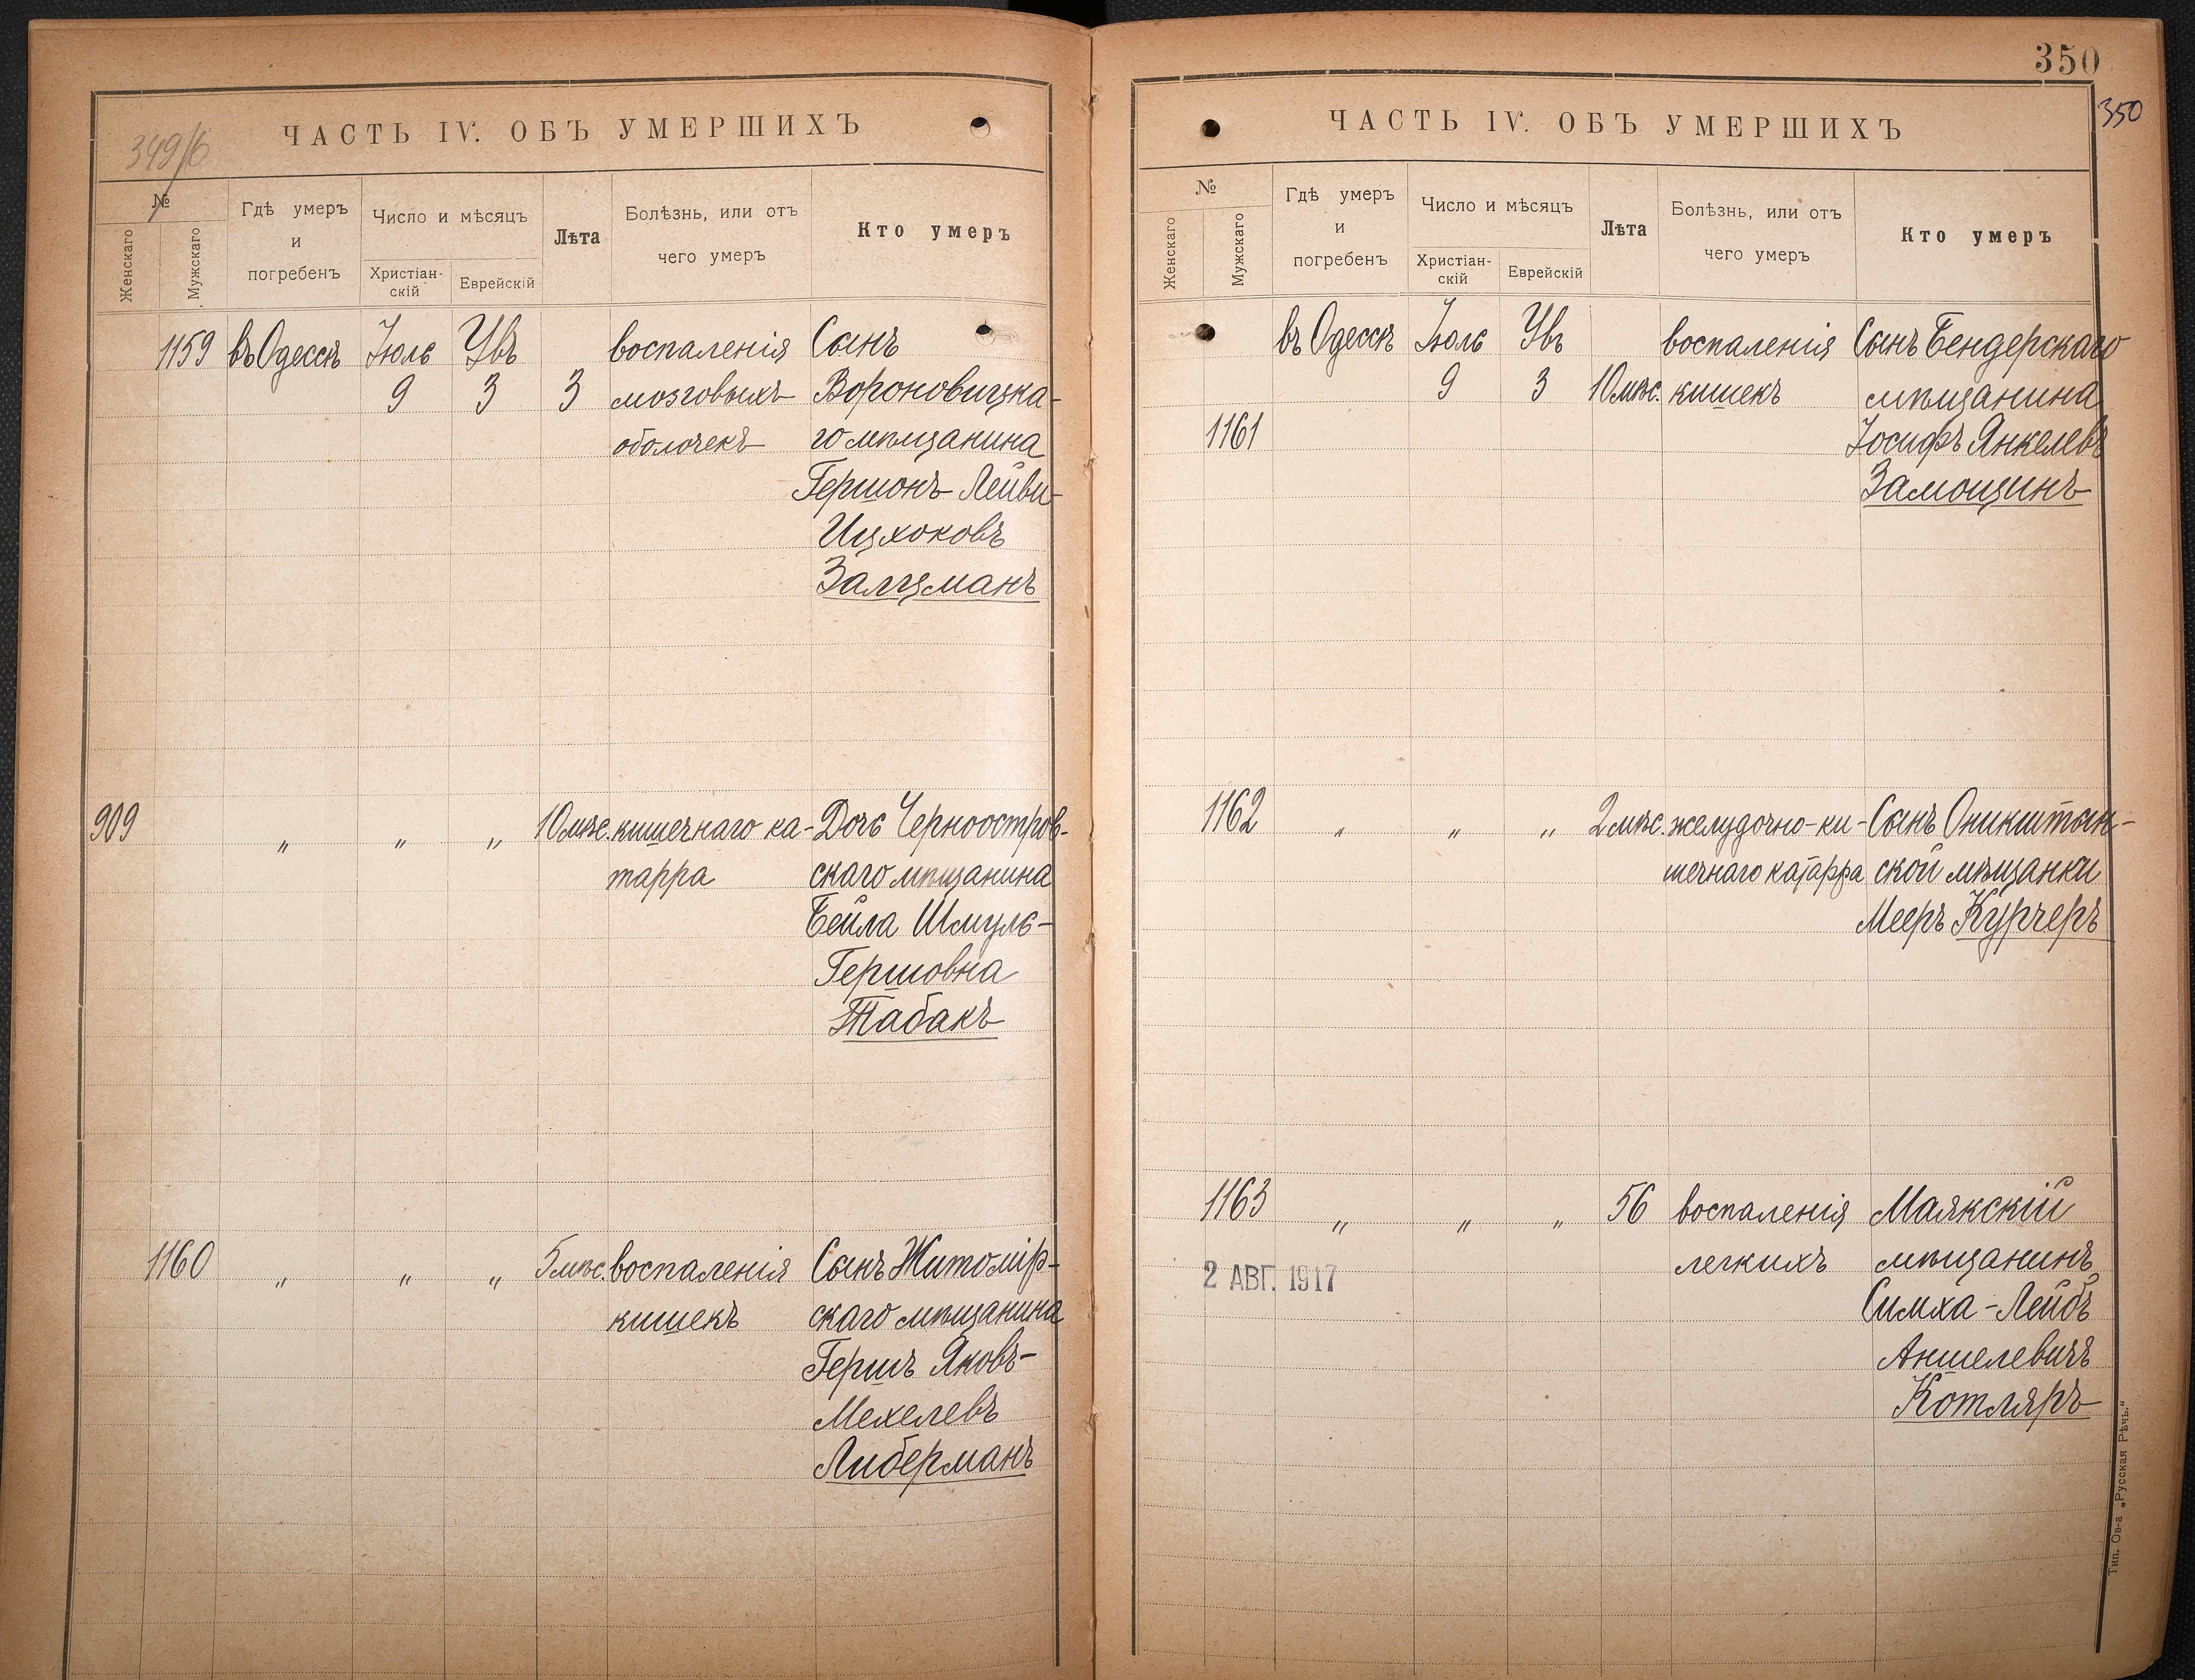 349/б
ЧАСТЬ IV. ОБЪ УМЕРШИХЪ
№
Женскаго
Мужскаго
Гдѣ умеръ
и
погребенъ
Число и мѣсяцъ
Христіан-
скій
Еврейскій
Лѣта
Болѣзнь, или отъ
чего умеръ
Кто умеръ
1159 въ Одессѣ Іюль Увъ воспаленія Сынъ
9 3 3 мозговыхъ Вороновицка-
оболочекъ го мѣщанина
Гершонъ Лейви-
Ицхоковъ
Залцманъ
909 " " " 10 мѣс. кишечнаго ка- Дочь Черноостров-
тарра скаго мѣщанина
Бейла Шмуль-
Гершовна
Табакъ
1160 " " " 5 мѣс. воспаленія Сынъ Житомір-
кишекъ скаго мѣщанина
Гершъ Яковъ-
Мехелевъ
Либерманъ
350
350
ЧАСТЬ IV. ОБЪ УМЕРШИХЪ
№
Женскаго
Мужскаго
Гдѣ умеръ
и
погребенъ
Число и мѣсяцъ
Христіан-
скій
Еврейскій
Лѣта
Болѣзнь, или отъ
чего умеръ
Кто умеръ
въ Одессѣ Іюль Увъ воспаленія Сынъ Бендерскаго
9 3 10 мѣс. кишекъ мѣщанина
1161 Іосифъ Янкелевъ
Замощинъ
1162 " " " 2 мѣс. желудочно-ки- Сынъ Оникштын-
шечнаго катарра ской мѣщанки
Мееръ Курчеръ
1163 " " " 56 воспаленія Маякскій
легкихъ мѣщанинъ
2 АВГ. 1917
Симха-Лейбъ
Аншелевичъ
Котляръ
Тип. Ов-а „Русская Рѣчь.“